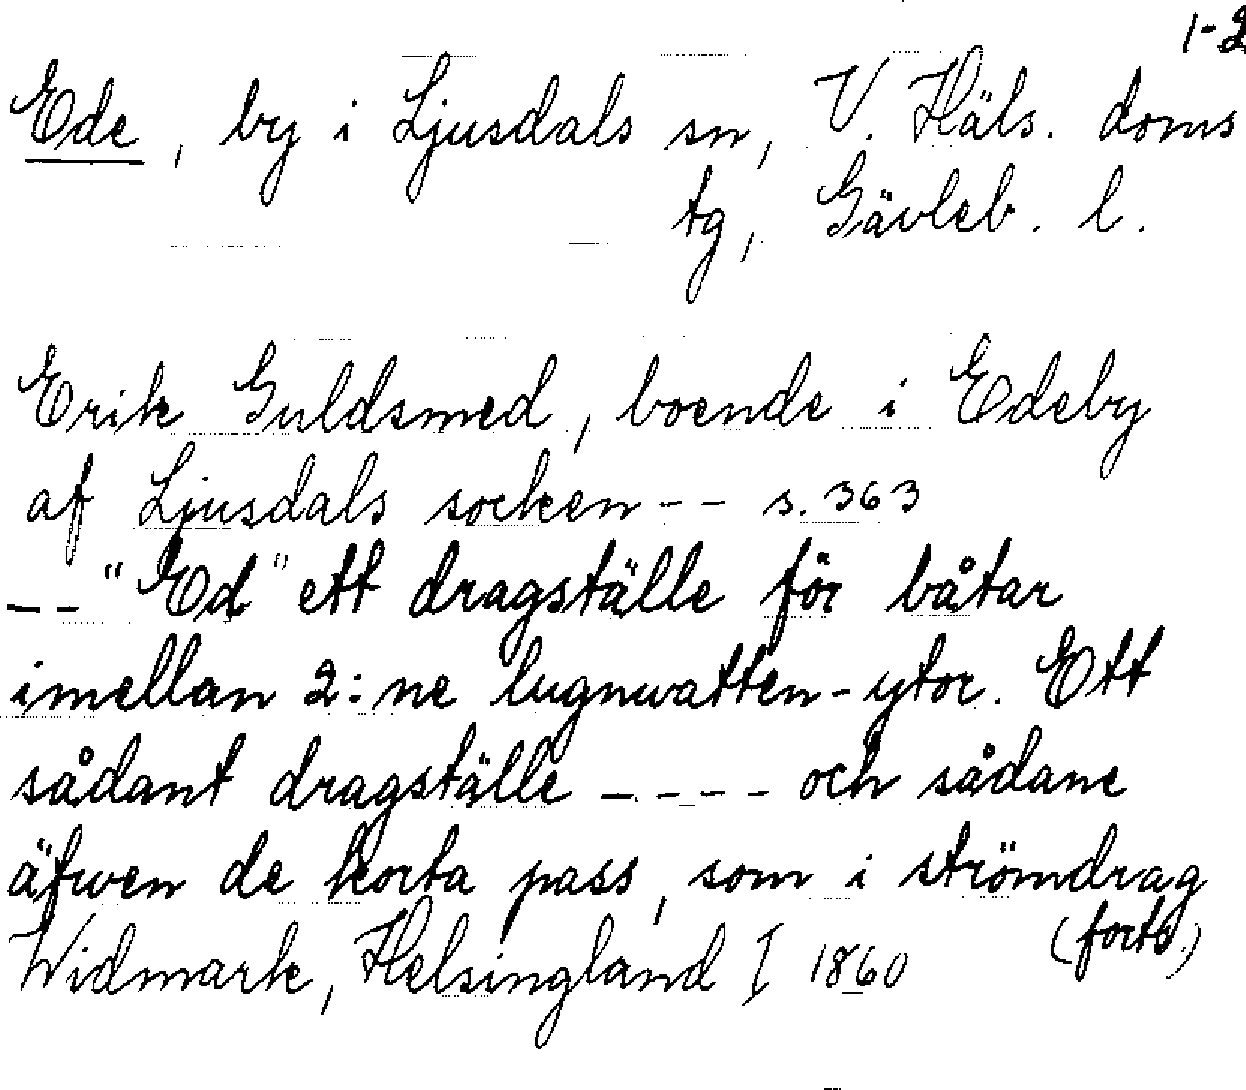 1-2
Ede, by i Ljusdals sn, V. Häls. doms
tg, Gävleb. l.
Erik Guldsmed, boende i Edeby
af Ljusdals socken -- s. 363
-- "Ed" ett dragställe för båtar
imellan 2:ne lugnwatten-ytor. Ett
sådant dragställe ---- och sådane
äfwen de korta pass, som i strömdrag
(forts.)
Widmark, Helsingland I 1860